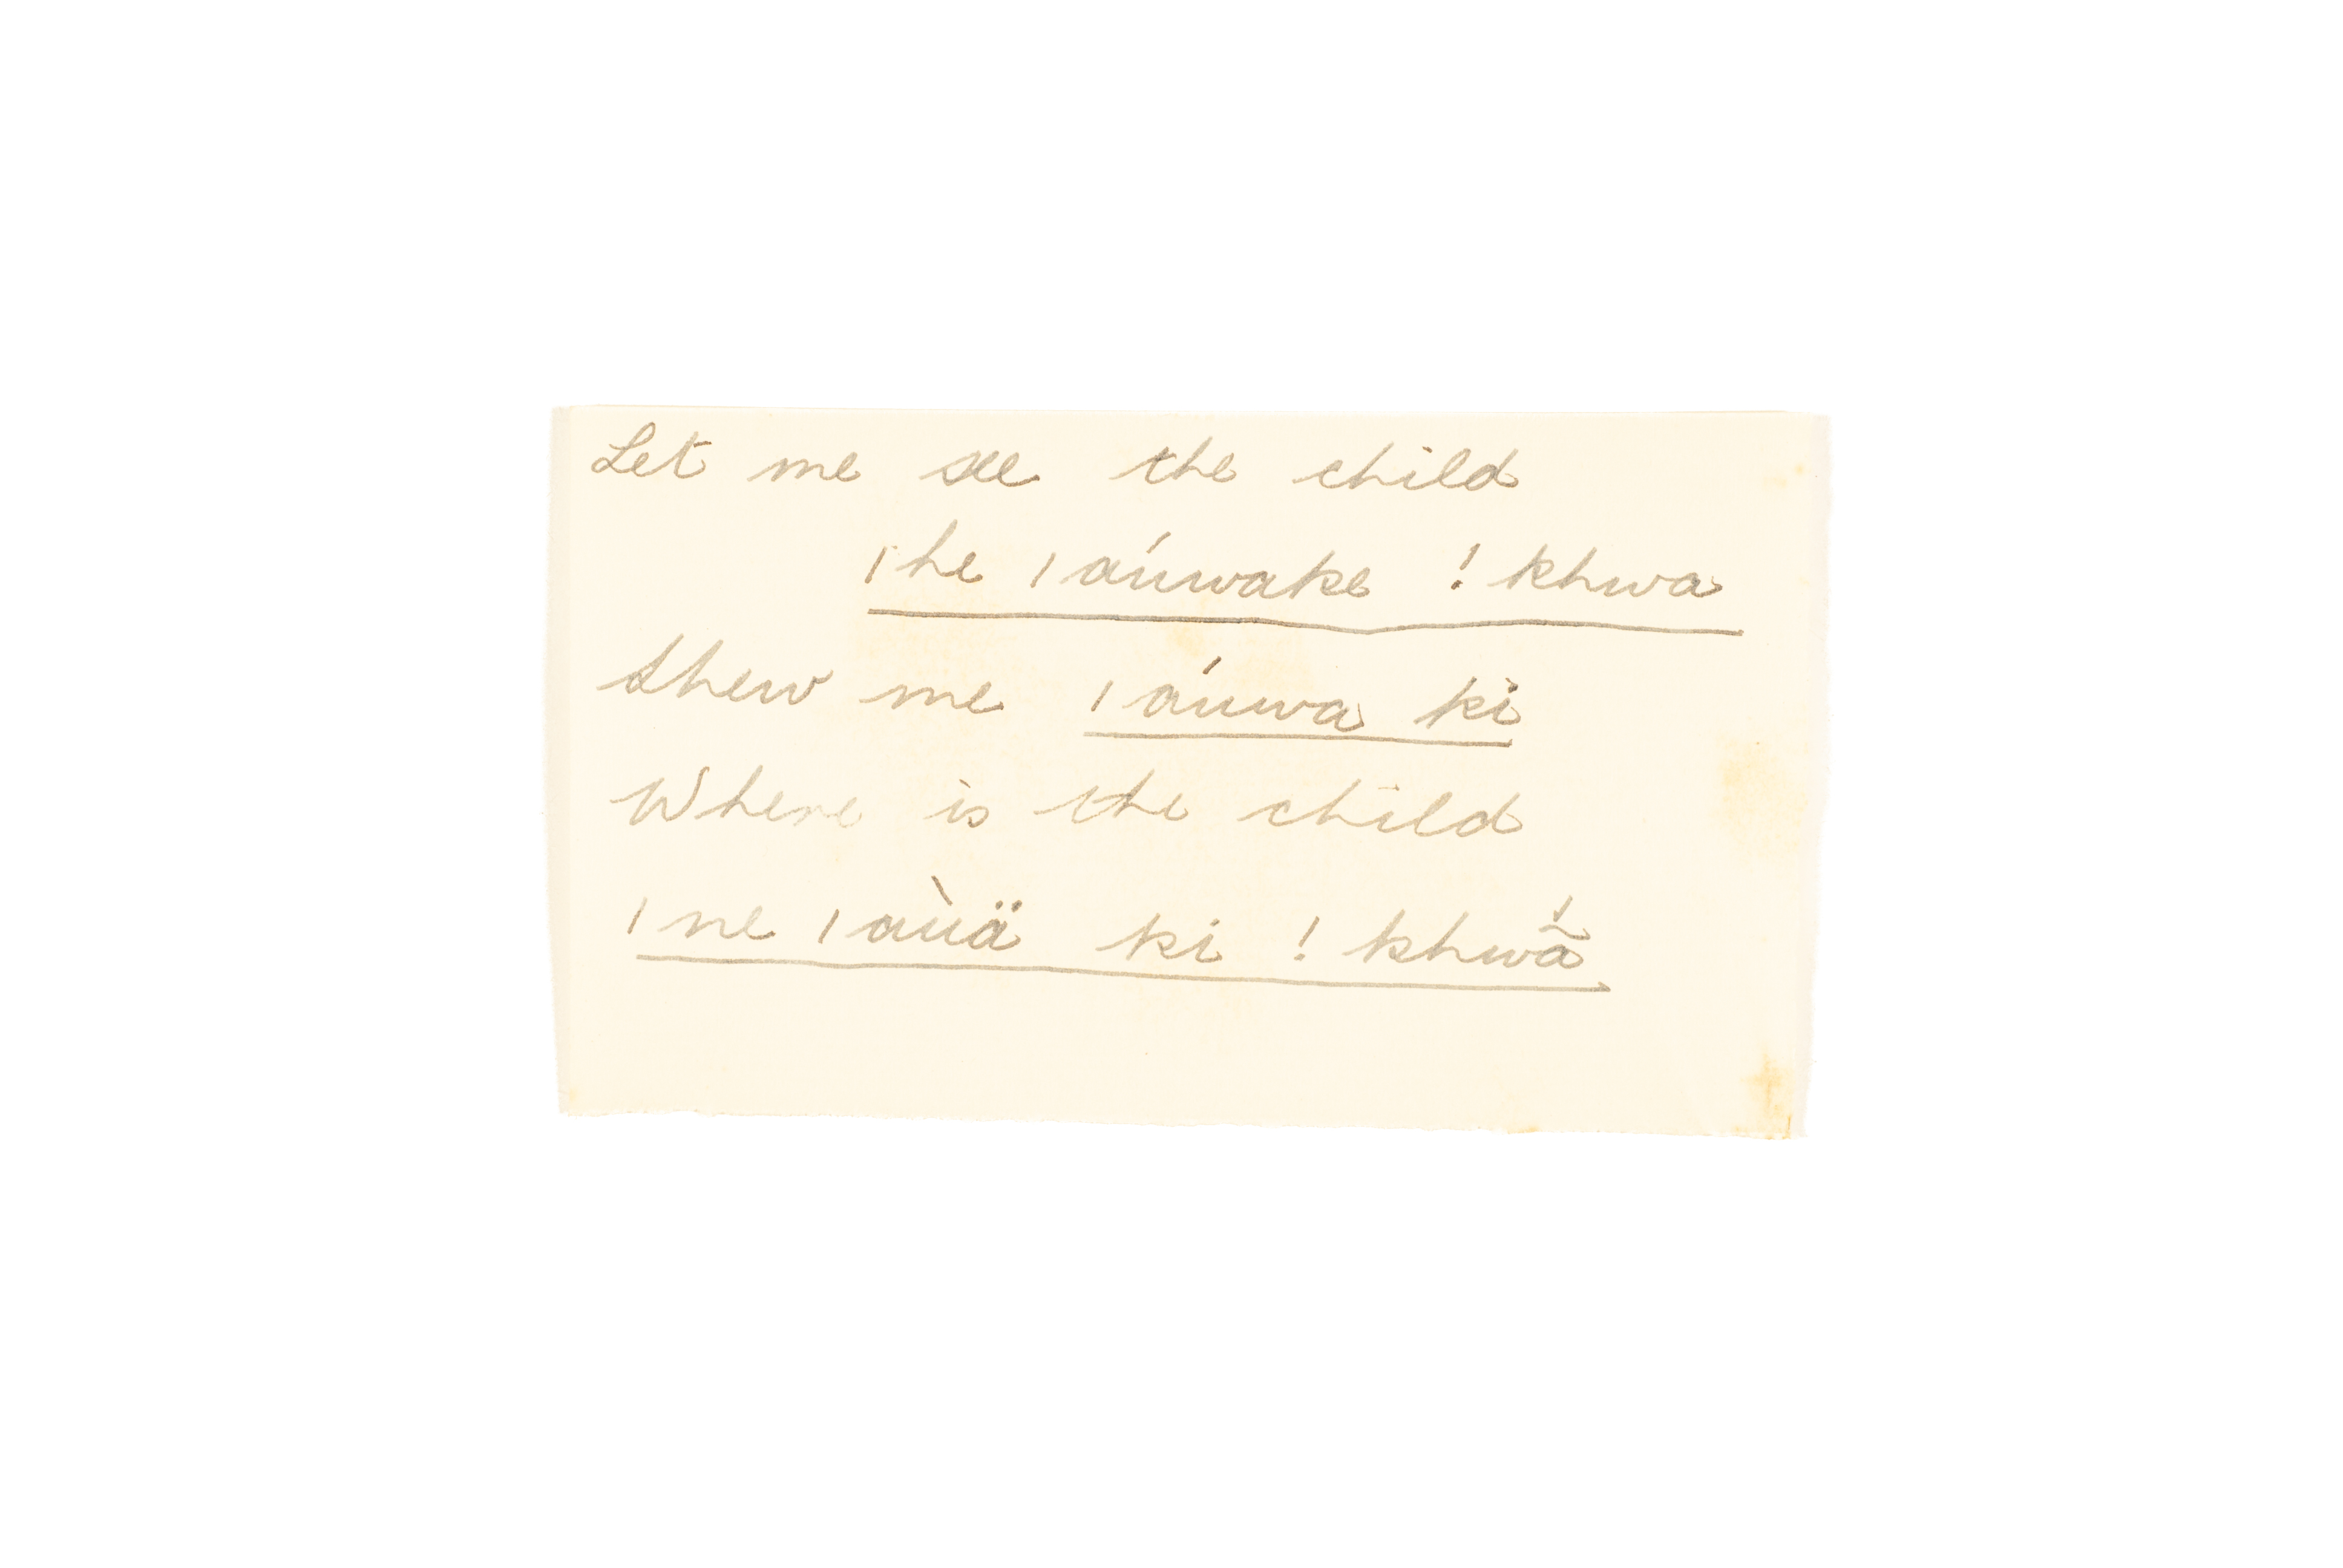 Let me see the child
ǀhe ǀaúwake ! khwa
Shew me ǀaúwa ki
Where is the child
ǀne ǀauùä ki ! khwã́